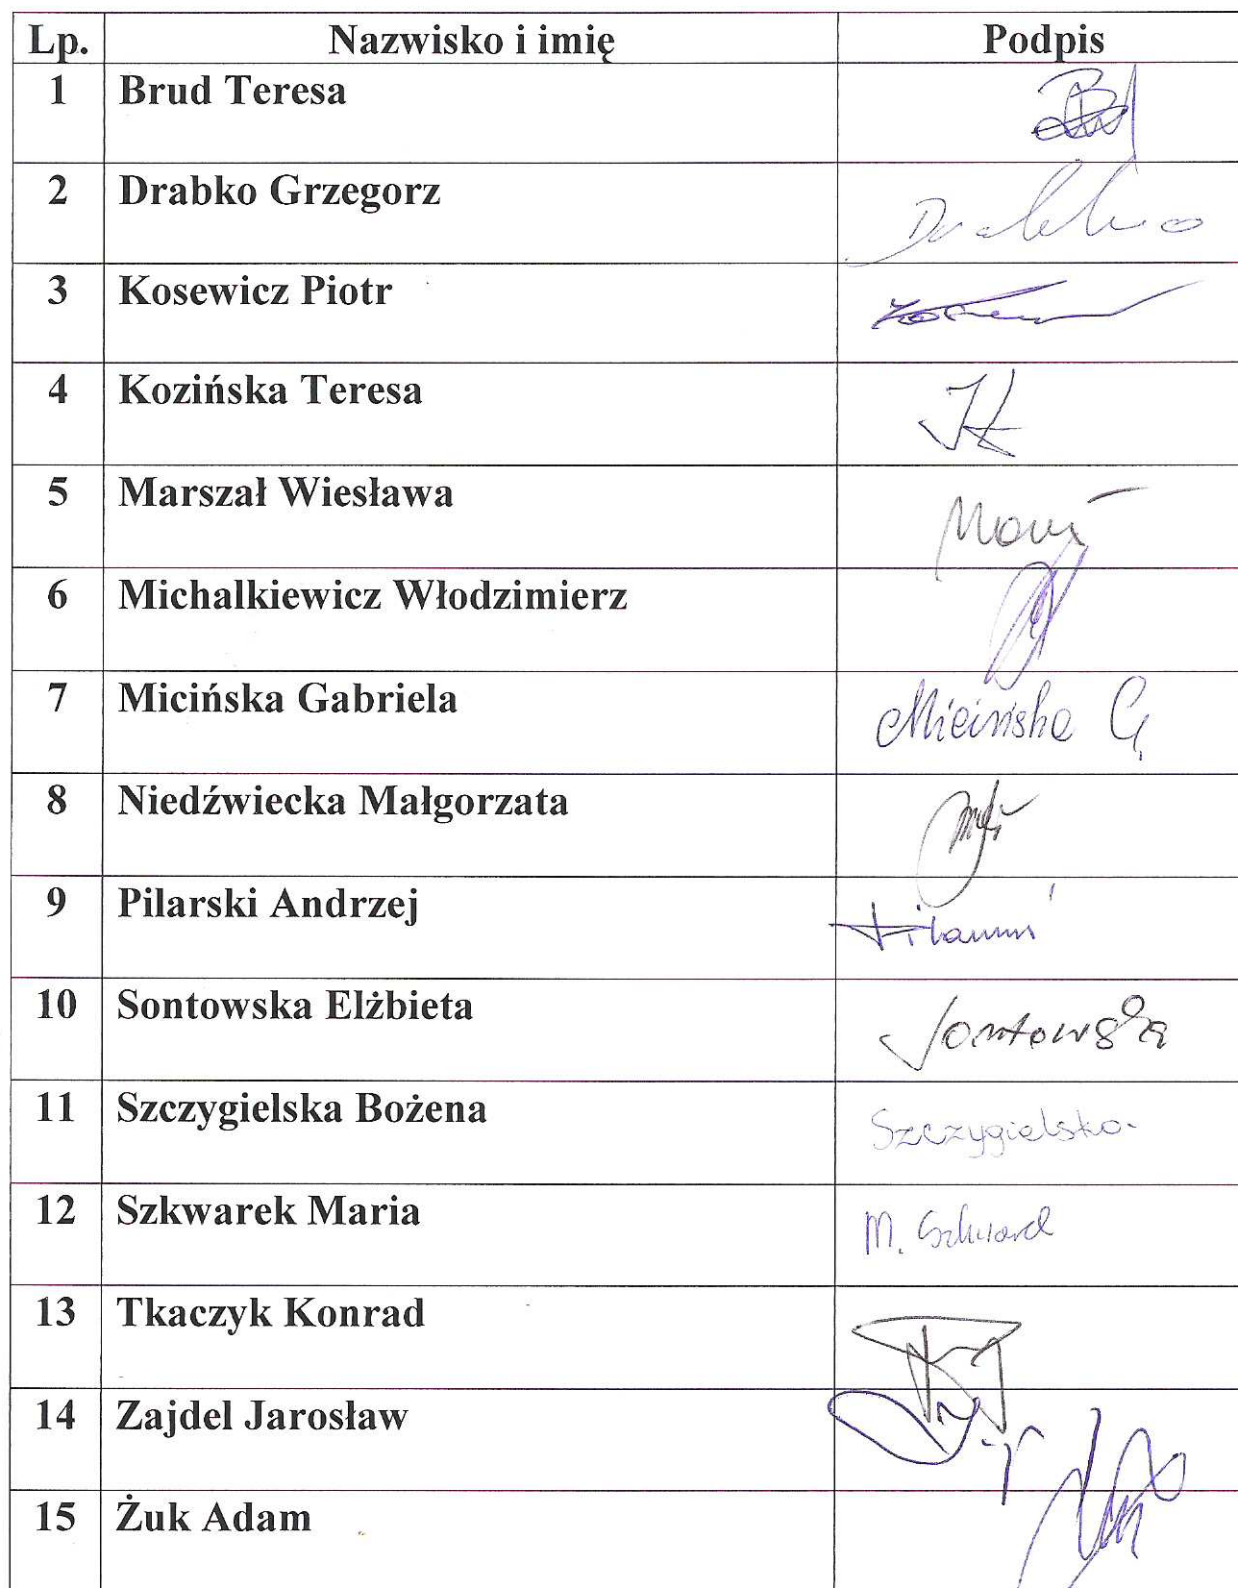 Lp. Nazwisko i imię Podpis
1 Brud Teresa
2 Drabko Grzegorz Drabko
3 Kosewicz Piotr
4 Kozińska Teresa
5 Marszał Wiesława
6 Michalkiewicz Włodzimierz
7 Micińska Gabriela Micińska G.
8 Niedźwiecka Małgorzata
9 Pilarski Andrzej
10 Sontowska Elżbieta Sontowska
11 Szczygielska Bożena Szczygielska
12 Szkwarek Maria M.
13 Tkaczyk Konrad
14 Zajdel Jarosław
15 Żuk Adam